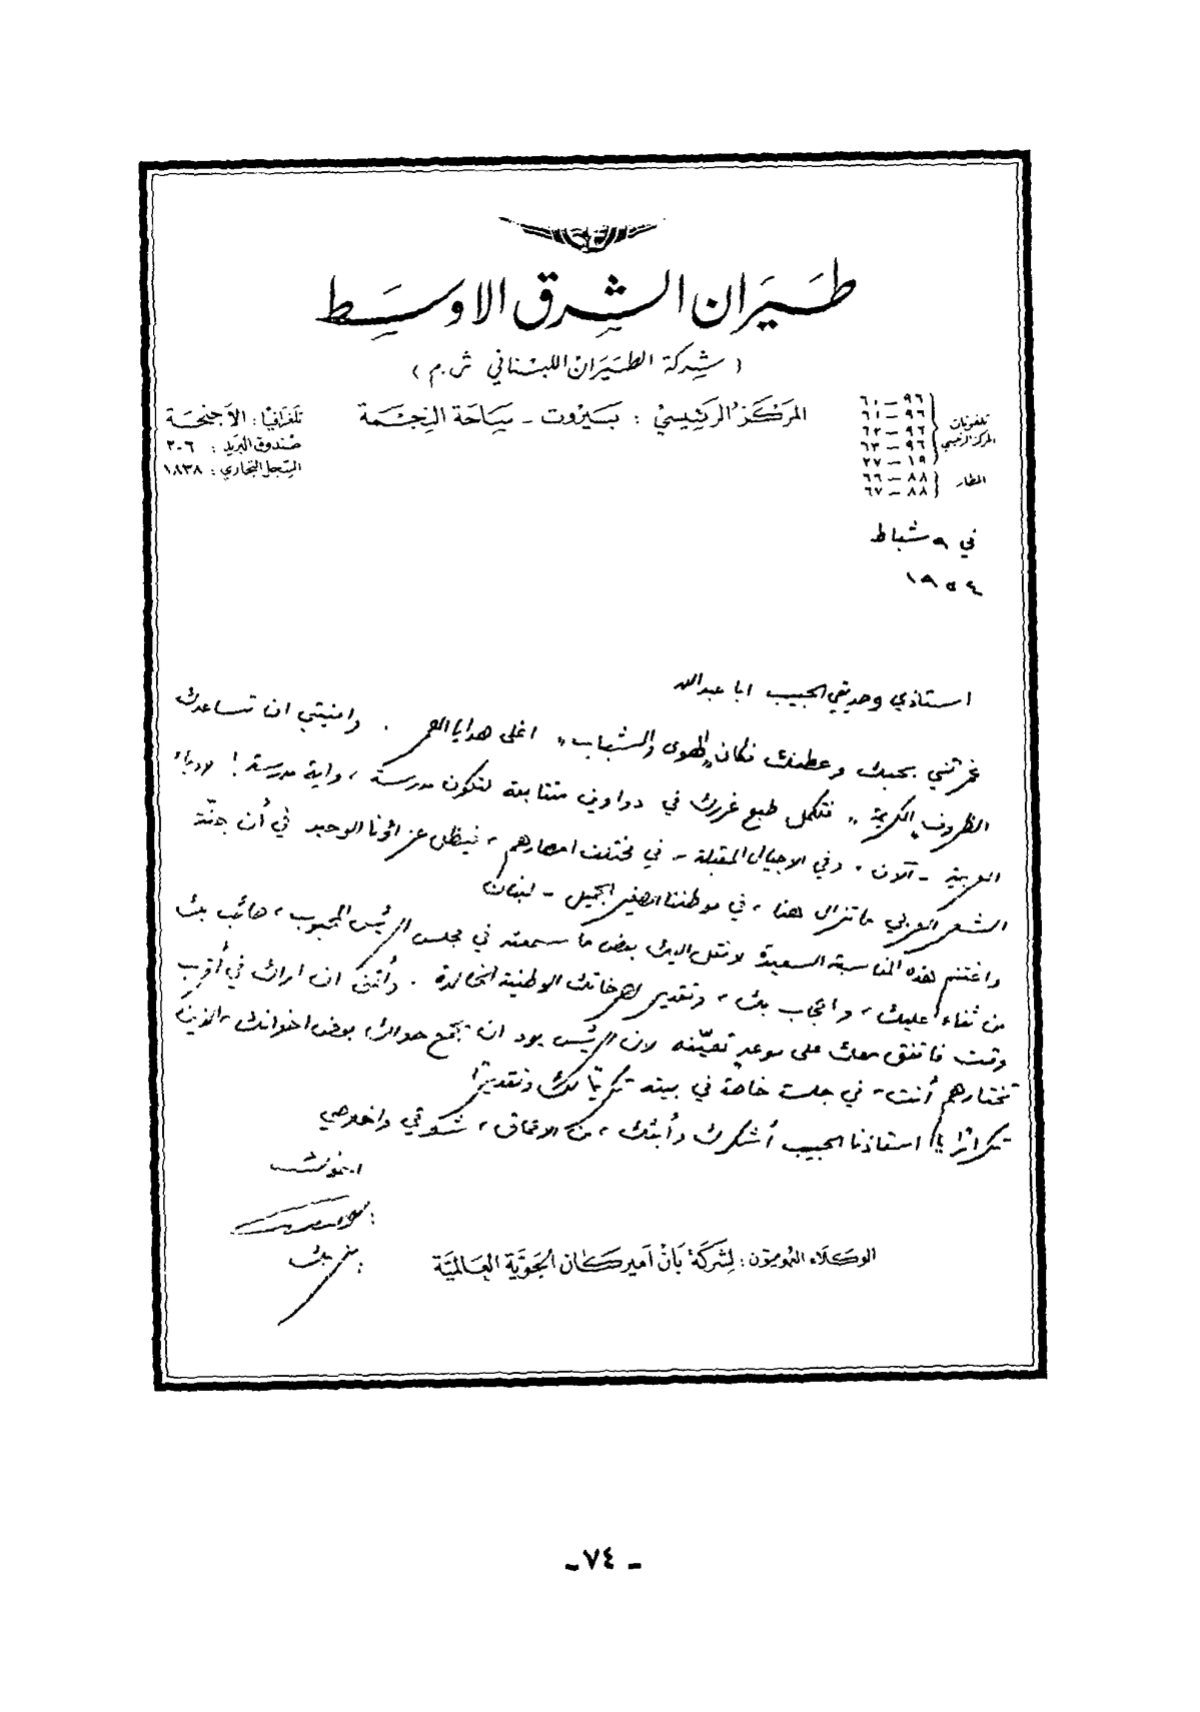 طيران الشرق الاوسط
(شركة الطيران اللبناني ش.م)
المركز الرئيسي : بيروت - ساحة النجمة
تلفونات المركز الرئيسي
٩٦ - ٦٠
٩٦ - ٦١
٩٦ - ٦٢
٩٦ - ٦٣
١٩ - ٢٧
المطار
٨٨ - ٦٦
٨٨ - ٦٧
تلغرافيا : الأجنحة
صندوق البريد : ٢٠٦
السجل التجاري : ١٨٣٨
في ٩ شباط
١٩٥٤
استاذي وصديقي الحبيب ابا عبدالله
غمرتني بحبك وعطفك فكان "الهوى والشباب" اغلى هدايا العمر . وامنيتي ان تساعدك
الظروف "الكريمة" فتكمل طبع غررك في دواوين متتابعة لتكون مدرسة، واية مدرسة! لادباء
العربية - الآن، وفي الاجيال المقبلة - في مختلف امصارهم، فيظل عزاؤنا الوحيد في أن جنّة
الشعر العربي ما تزال هنا، في موطننا الصغير الجميل - لبنان
واغتنم هذه المناسبة السعيدة لانقل اليك بعض ما سمعته في مجلس الرئيس المحبوب، صائب بك
من ثناء عليك، واعجاب بك، وتقدير لصرخاتك الوطنية الخالدة . وأتمنى ان اراك في أقرب
وقت فاتفق معك على موعد تعيّنه لان الرئيس يود ان يجمع حوالك بعض اخوانك، الذين
تختارهم أنت، في جلسة خاصة في بيته تكريما لك وتقديرا
استاذنا الحبيب أشكرك وأبثك، من الاعماق، شوقي واخلاصي
الوكلاء العموميون : لشركة بان اميركان الجوية العالمية
- ٧٤ -